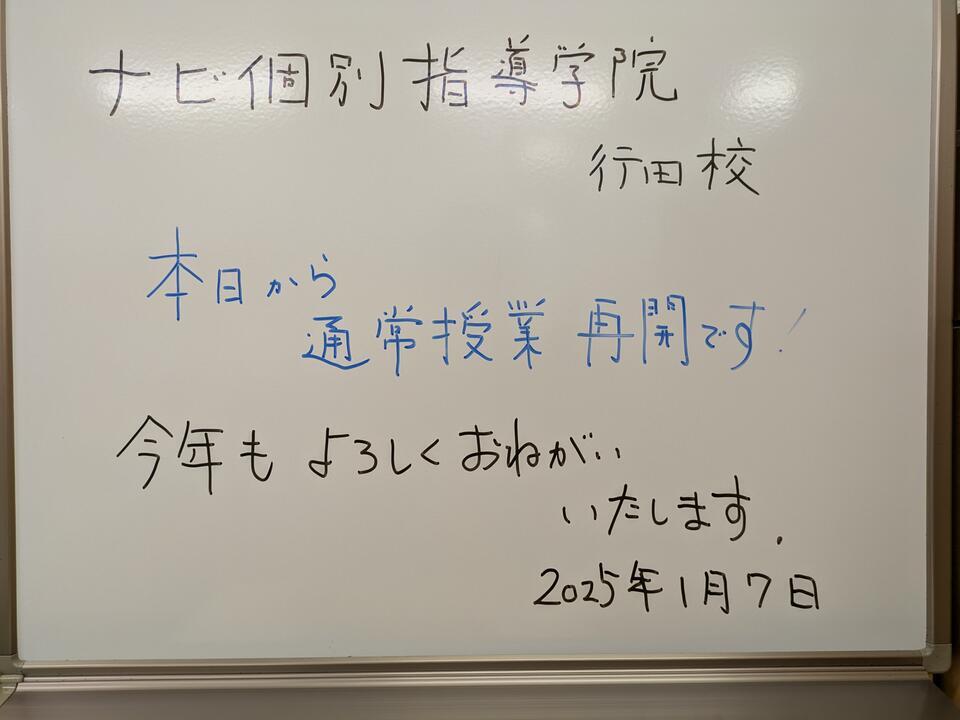 ナビ個別指導学院
行田校
本日から
通常授業再開です!
今年もよろしくおねがい
いたします.
2025年1月7日